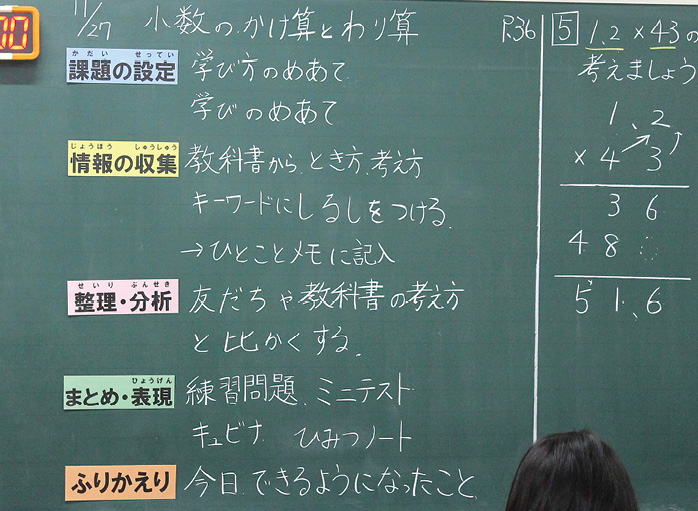 11/27 小数のかけ算とわり算 P.36
かだい せってい
課題の設定 学び方のめあて
学びのめあて
じょうほう しゅうしゅう
情報の収集 教科書から、とき方、考え方
キーワードにしるしをつける。
→ひとことメモに記入
せいり ぶんせき
整理・分析 友だちや教科書の考え方
と比かくする。
ひょうげん
まとめ・表現 練習問題、ミニテスト
キュビナ ひみつノート
ふりかえり 今日、できるようになったこと。
5 1.2×43の
考えましょう
1.2
×43
36
48
51.6